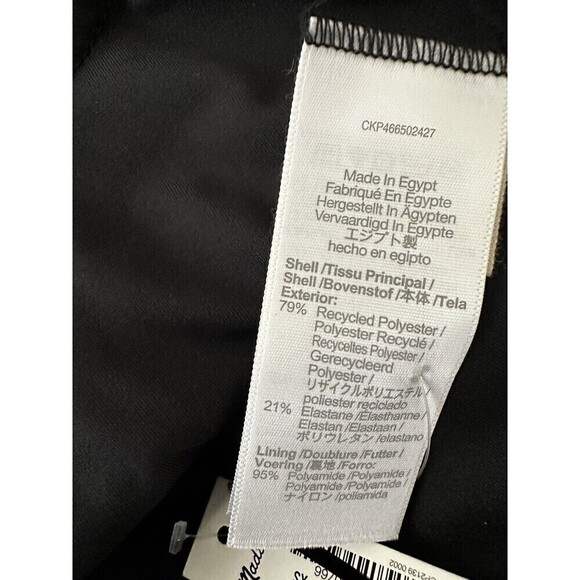 CKP466502427
Made In Egypt
Fabriqué En Egypte
Hergestellt In Ägypten
Vervaardigd In Egypte
エジプト製
hecho en egipto
Shell /Tissu Principal /
Shell /Bovenstof /本体 /Tela
Exterior:
79% Recycled Polyester /
Polyester Recyclé /
Recycelltes Polyester /
Gerecycleerd
Polyester /
リサイクルポリエステル /
poliester reciclado
21% Elastane /Élasthanne /
Elastan /Elastaan /
ポリウレタン /elastano
Lining /Doublure /Futter /
Voering /裏地 /Forro:
95% Polyamide /Polyamide /
Polyamide /Polyamide /
ナイロン /poliamida
Made
XS